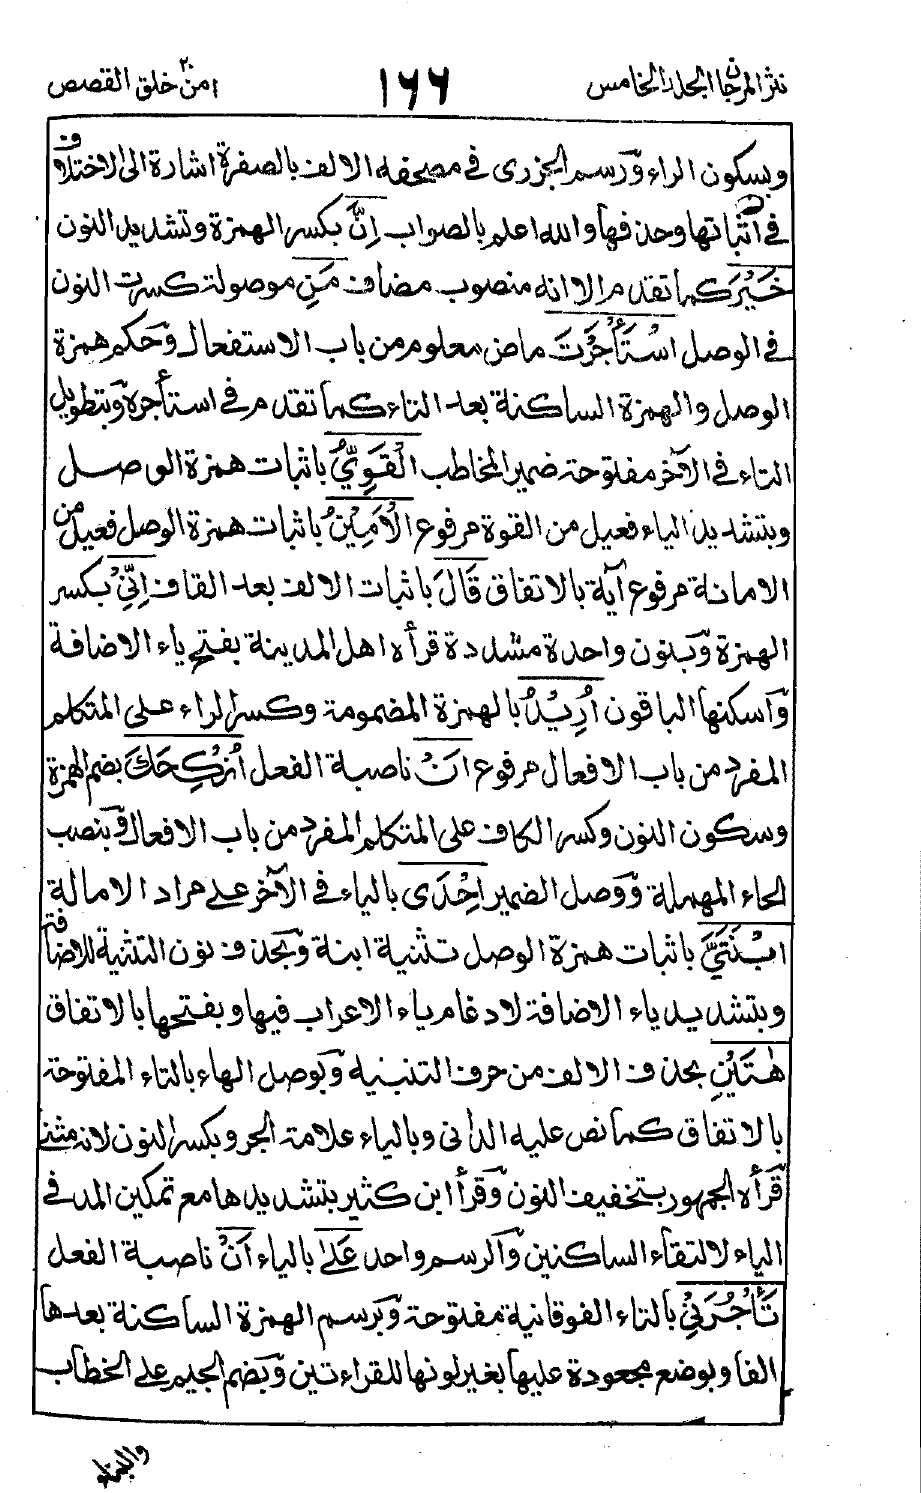 نثر المرجان المجلد الخامس
١٦٦
امن خلق ٢٠ القصص
وبسكون الراء ورسم الجزرى فى مصحفه الالف بالصفرة اشارة الى الاختلاف
فى اثباتها وحذفها والله اعلم بالصواب اِنَّ بكسر الهمزة وتشديد النون
خَيْرَ كما تقدم الا انه منصوب مضاف مَنِ موصولة كسرت النون
فى الوصل اسْتَأْجَرْتَ ماض معلوم من باب الاستفعال وحكم همزة
الوصل والهمزة الساكنة بعد التاء كما تقدم فى استأجره وبتطويل
التاء فى الآخر مفتوحة ضمير المخاطب الْقَوِيُّ باثبات همزة الوصل
وبتشديد الياء فعيل من القوة مرفوع الْاَمِيْنُ باثبات همزة الوصل فعيل من
الامانة مرفوع آية بالاتفاق قَالَ باثبات الالف بعد القاف اِنِّيْ بكسر
الهمزة وبنون واحدة مشددة قرأه اهل المدينة بفتح ياء الاضافة
وآسكنها الباقون اُرِيْدُ بالهمزة المضمومة وكسر الراء على المتكلم
المفرد من باب الافعال مرفوع اَنْ ناصبة الفعل اُنْكِحَكَ بضم الهمزة
وسكون النون وكسر الكاف على المتكلم المفرد من باب الافعال وبنصب
الحاء المهملة ووصل الضمير اِحْدَى بالياء فى الآخر على مراد الامالة
ابْنَتَيَّ باثبات همزة الوصل تثنية ابنة وبحذف نون التثنية للاضافة
وبتشديد ياء الاضافة لادغام ياء الاعراب فيها وبفتحها بالاتفاق
هٰتَيْنِ بحذف الالف من حرف التنبيه وبوصل الهاء بالتاء المفتوحة
بالاتفاق كما نص عليه الدانى وبالياء علامة الجر وبكسر النون لانه مثنى
قرأه الجمهور بتخفيف النون وقرأ ابن كثير بتشديدها مع تمكين المد فى
الياء لالتقاء الساكنين والرسم واحد عَلٰى بالياء اَنْ ناصبة الفعل
تَأْجُرَنِيْ بالتاء الفوقانية مفتوحة وبرسم الهمزة الساكنة بعدها
الفا وبوضع مجعودة عليها بغير لونها للقراءتين وبضم الجيم على الخطاب